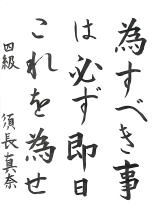 為すべき事
は必ず即日
これを為せ
四級 須長真奈